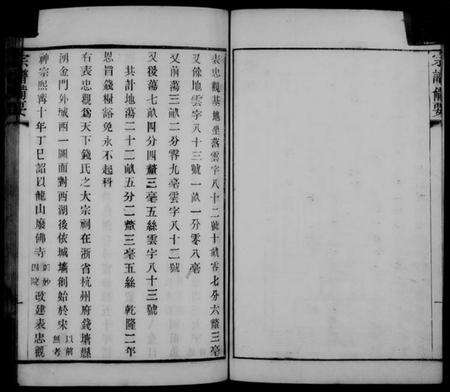 宗譜備要
表忠觀基地坐落雲字八十二號十畝零七分六釐三毫
又餘地雲字八十三號一畝一分零八毫
又前蕩三畝二分零九毫雲字八十二號
又後蕩七畝四分四釐三毫五絲雲字八十三號
共計地蕩二十二畝五分二釐三毫五絲 乾隆二年
恩旨錢糧豁免永不起科
右表忠觀爲天下錢氏之大宗祠在浙省杭州府錢塘縣
湧金門外城西一圖面對西湖後依城墻創始於宋 以前無考
神宗熙寧十年丁巳詔以龍山廢佛寺 卽妙因院 改建表忠觀
宗譜備要